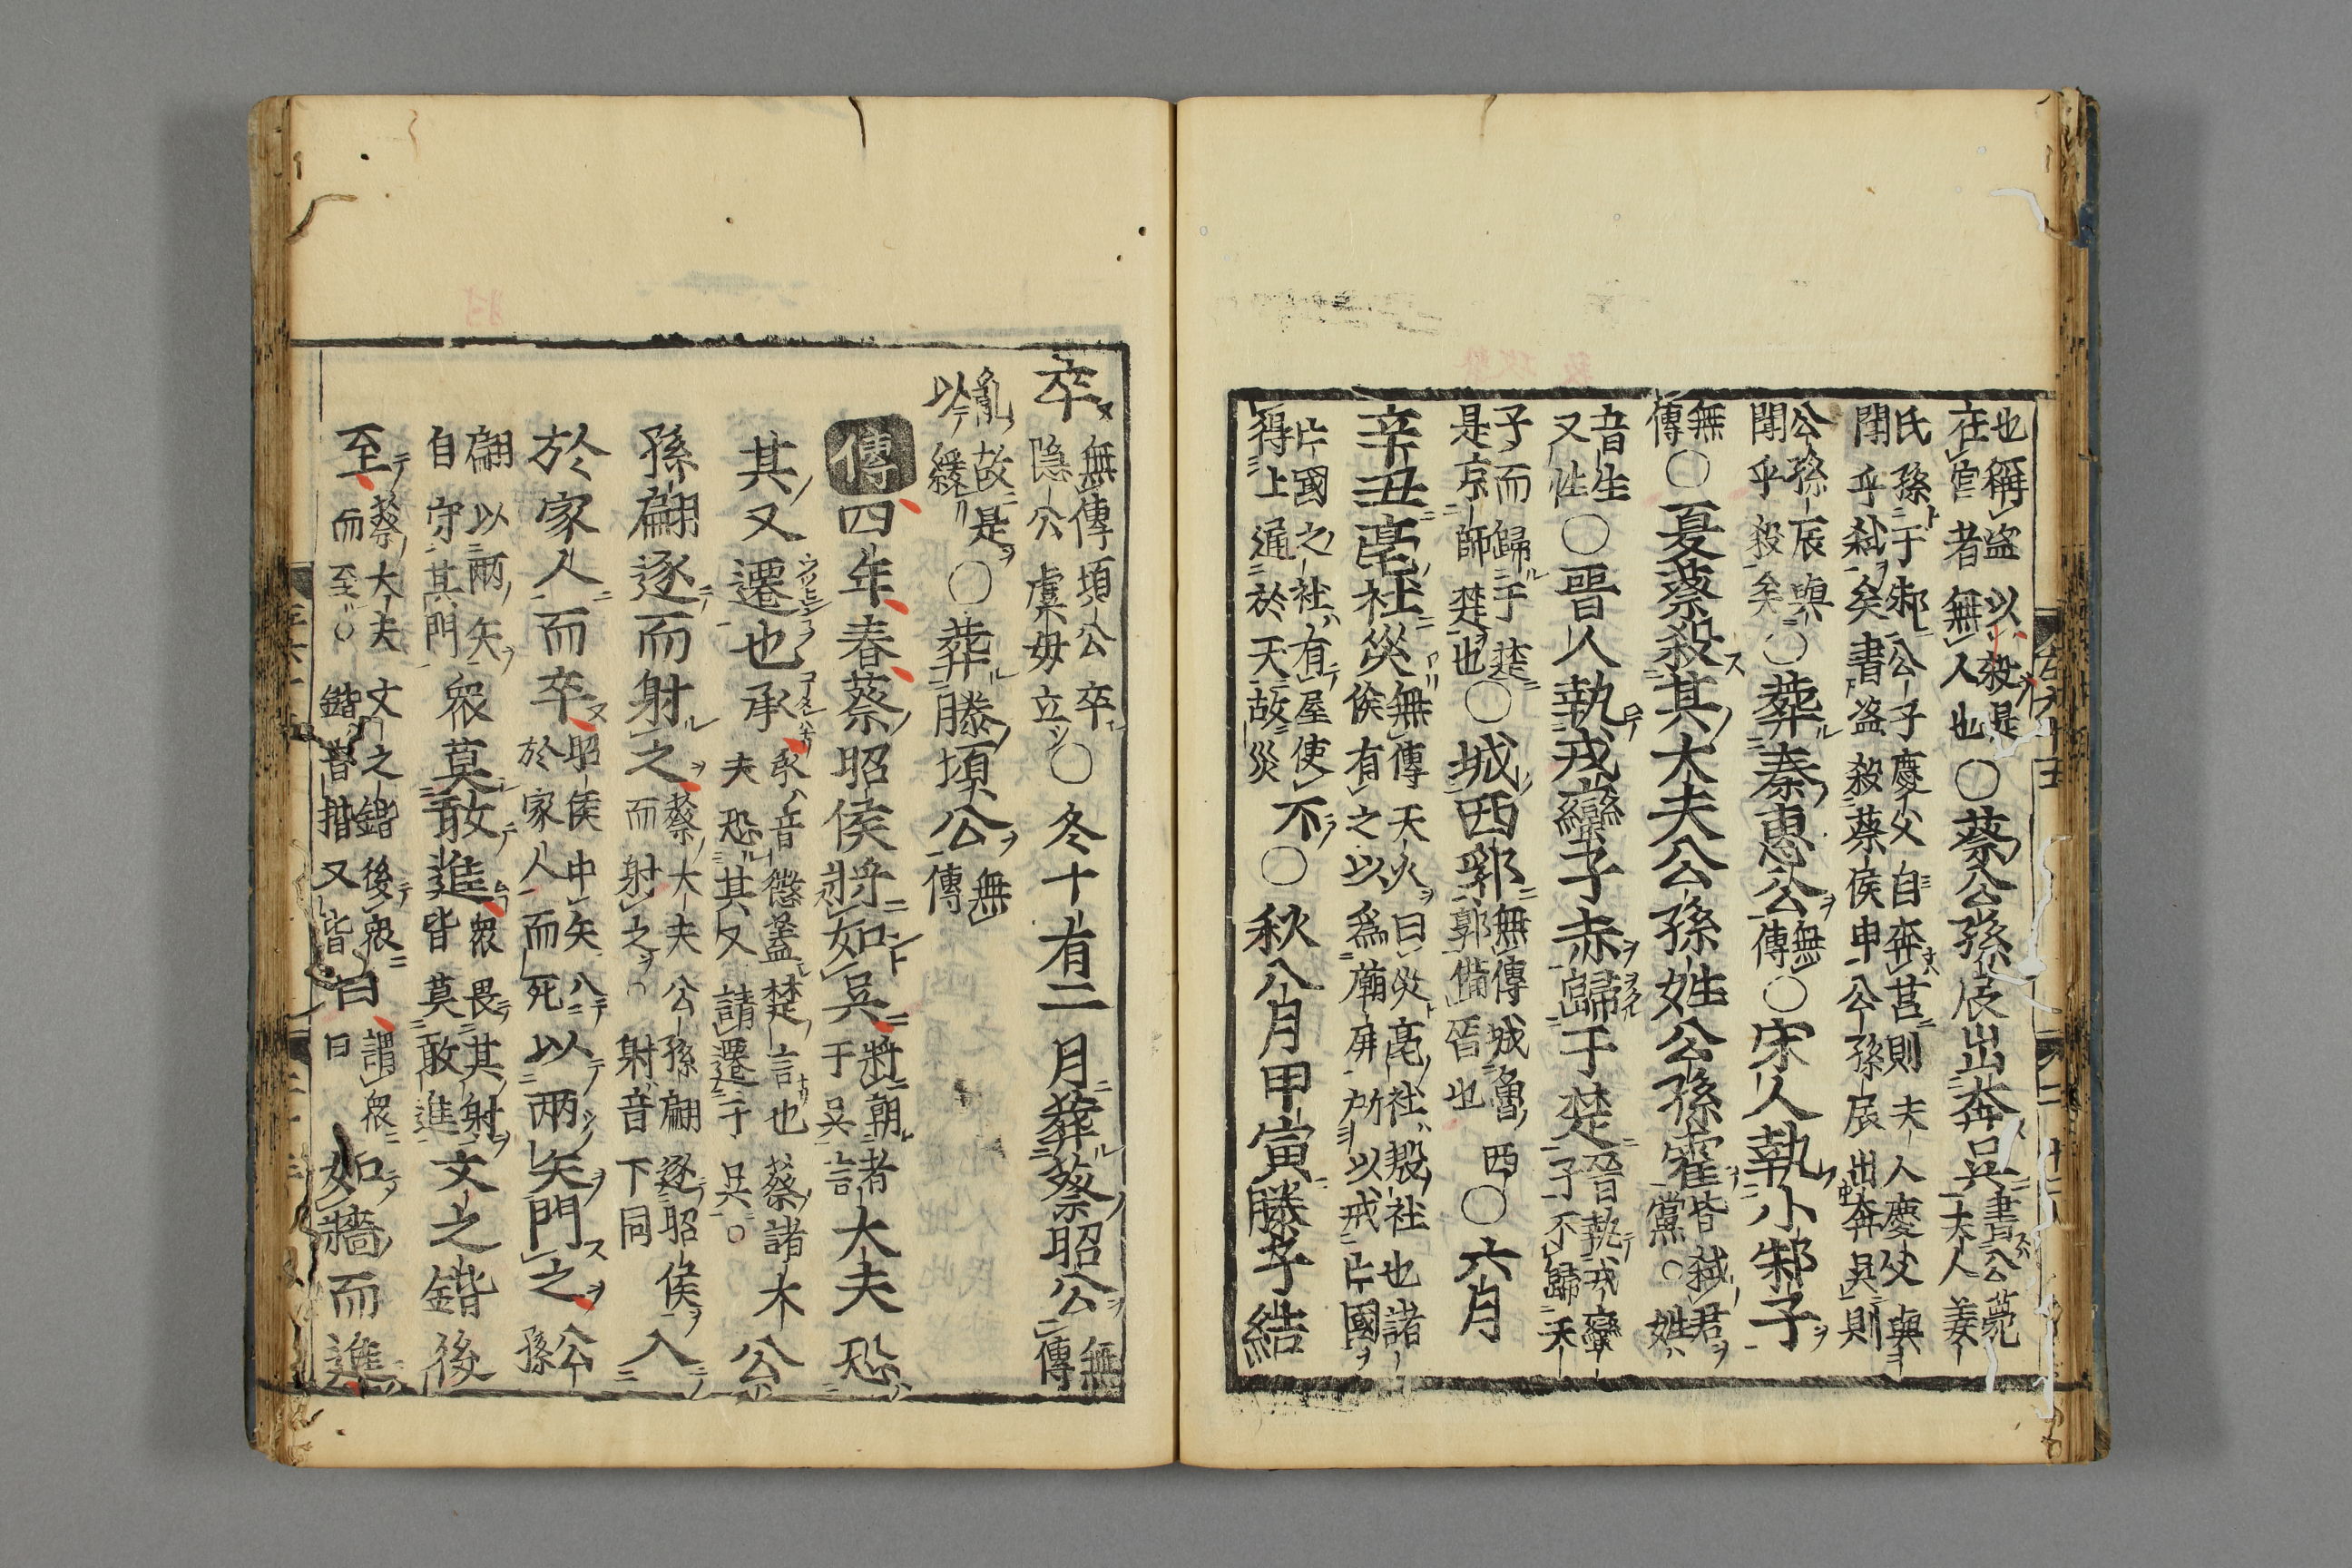 也稱盗以殺是在宦者無人也○蔡公孫辰出奔吳書公薨夫人姜
氏孫于邾公子慶父自奔莒則夫人慶父與聞乎弑矣書盗殺蔡侯申公孫辰出奔吳則
公孫辰與聞乎殺矣○葬秦惠公無傳○宋人執小邾子
無傳○夏蔡殺其大夫公孫姓公孫霍皆弑君黨○姓
音生又性○晉人執戎蠻子赤歸于楚晉執戎蠻子不歸天
子而歸于楚是京師楚也○城西郛無傳城魯西郭備晉也○六月
辛丑亳社災無傳天火曰災亳社殷社也諸侯有之以為廟屏所以戒亡國
亡國之社有屋使不得上通於天故災○秋八月甲寅滕子結
卒無傳頃公卒隐公虞毋立○冬十有二月葬蔡昭公無傳
亂故是以緩○葬滕頃公無傳
傳四年春蔡昭侯將如吳將朝于吳諸言大夫恐
其又遷也承承音懲蓋楚言也蔡諸大夫恐其又請遷于吳○公
孫翩逐而射之蔡大夫公孫翩逐昭侯而射之○射音下同入
於家人而卒昭侯中矢入於家人而死以兩矢門之公孫
翩以兩矢自守其門衆莫敢進衆畏其射皆莫敢進文之鍇後
至蔡大夫文之鍇後衆而至○鍇音揩又皆曰謂衆曰如牆而進